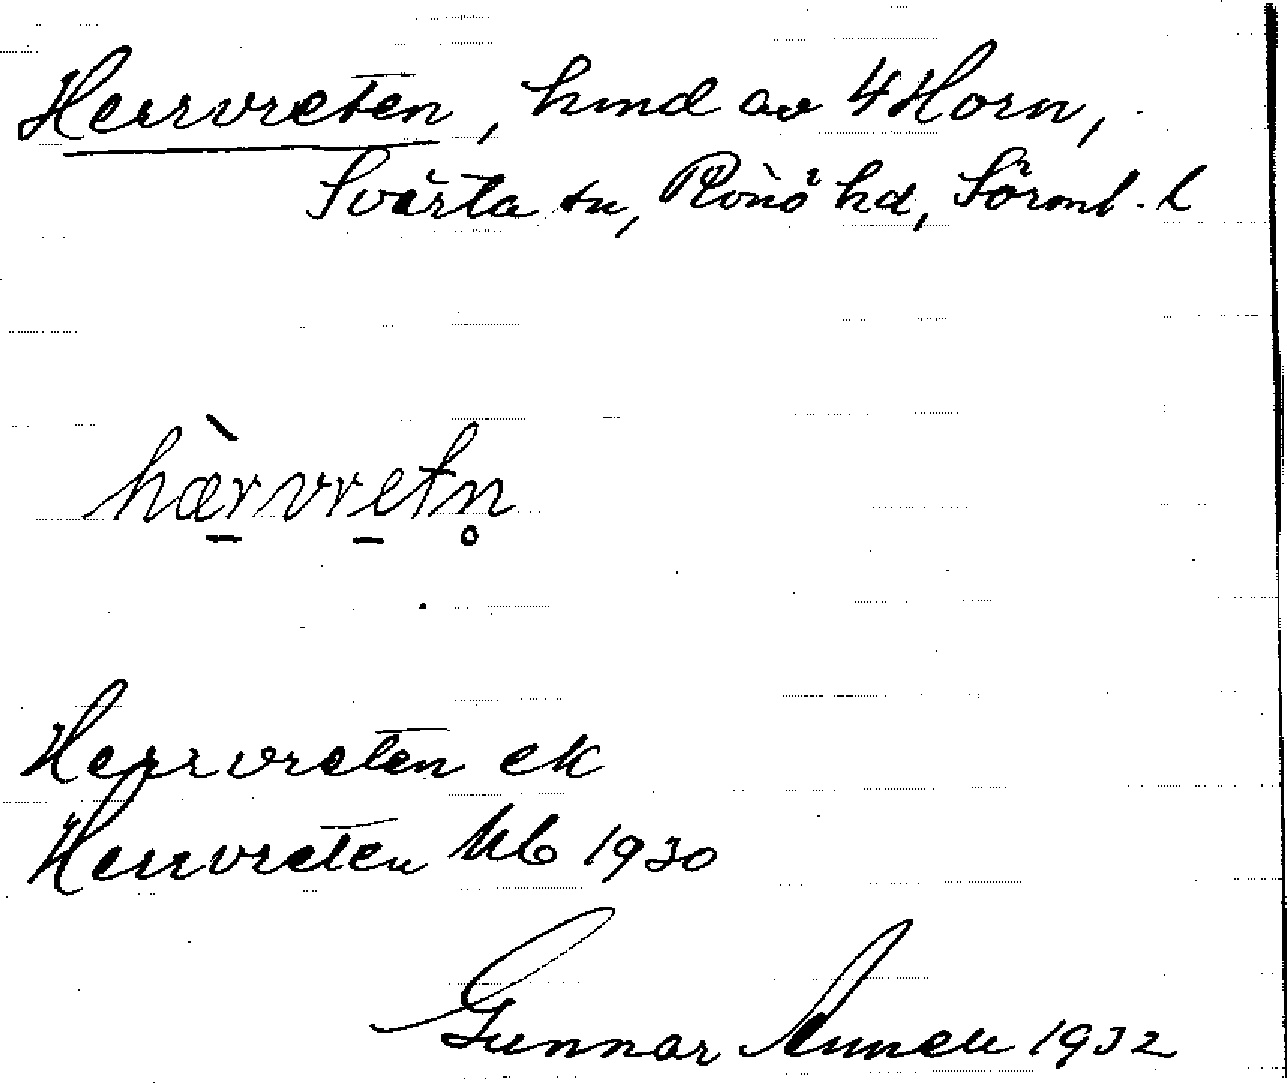 Herrvreten, hmd av 4 Horn,
Svärta sn, Rönö hd, Sörml. l
hær vretn̥
Herrvreten ek
Herrvreten Mb 1930
Gunnar Annell 1932